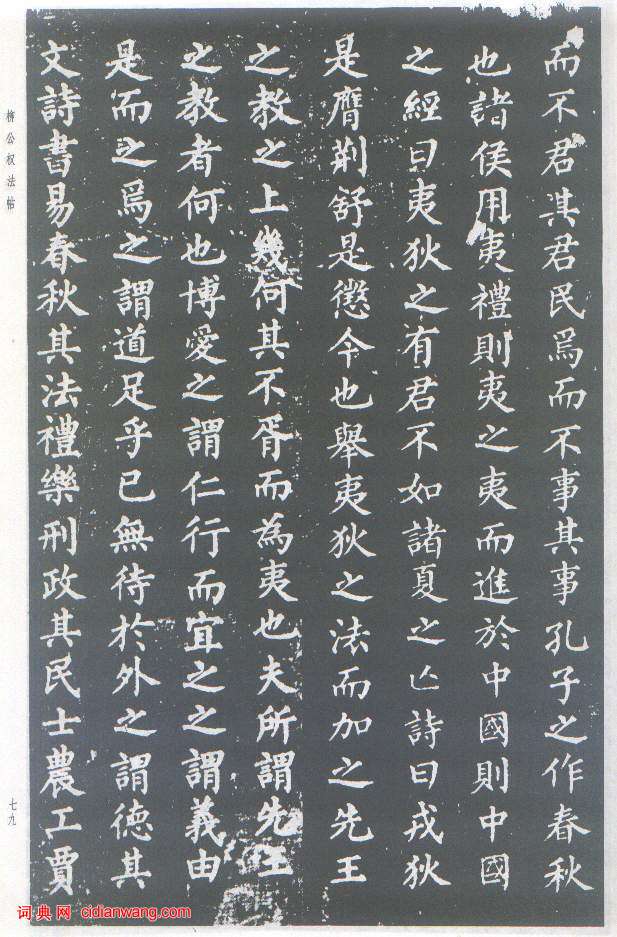 而不君其君民焉而不事其事孔子之作春秋
也諸侯用夷禮則夷之夷而進於中國則中國
之經曰夷狄之有君不如諸夏之亡詩曰戎狄
是膺荆舒是懲今也舉夷狄之法而加之先王
之教之上幾何其不胥而為夷也夫所謂先王
之教者何也博愛之謂仁行而宜之之謂義由
是而之焉之謂道足乎已無待於外之謂德其
文詩書易春秋其法禮樂刑政其民士農工賈
柳公权法帖
七九
词典网 cidianwang.com